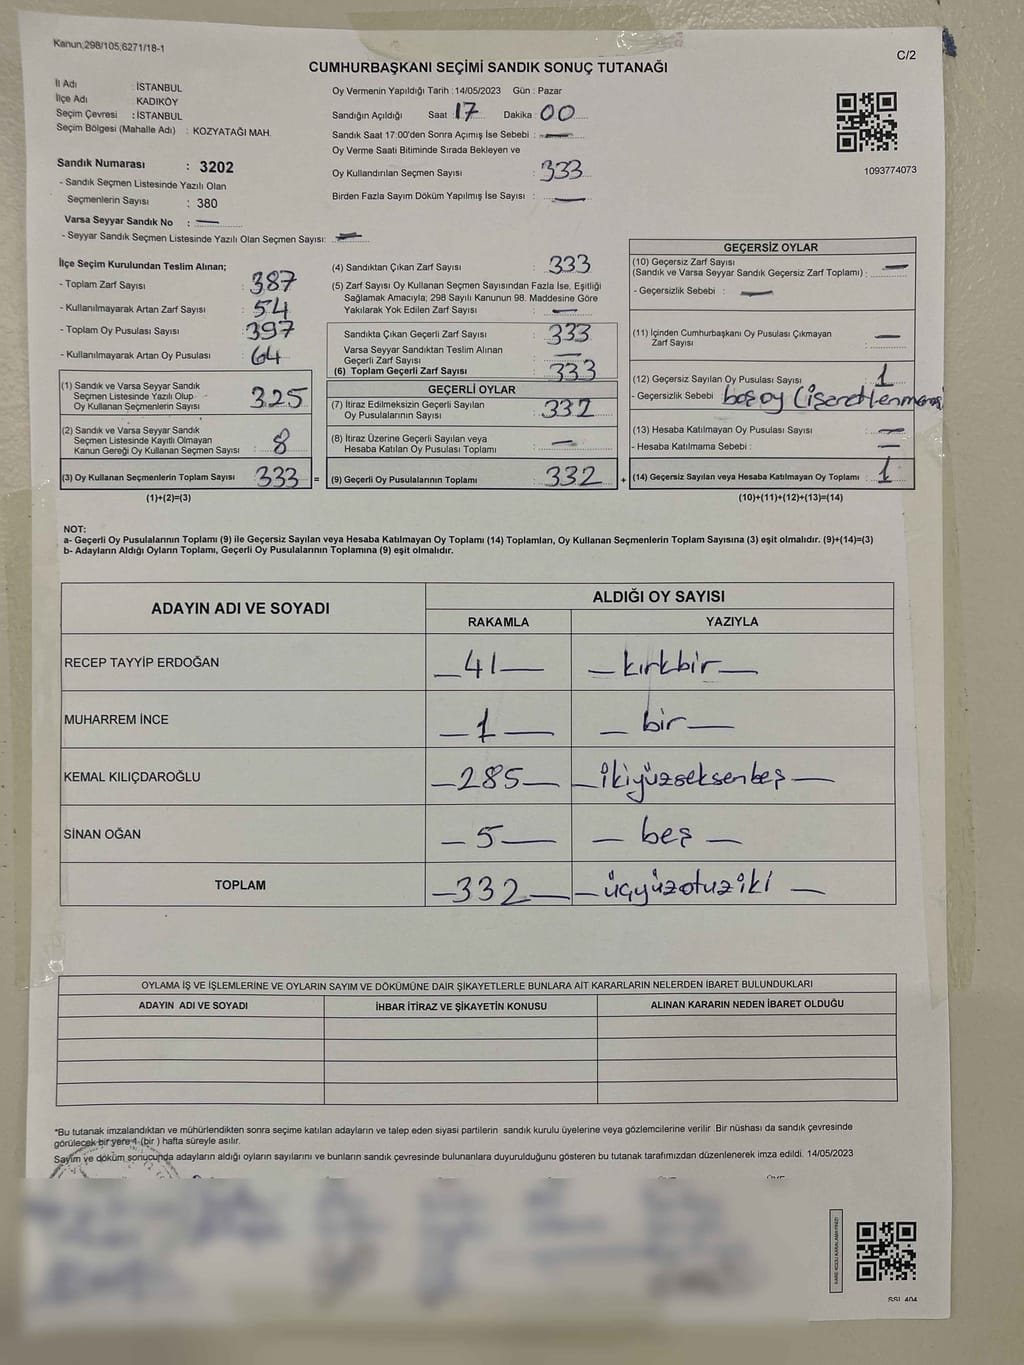 Kanun,298/105,6271/18-1
C/2
CUMHURBAŞKANI SEÇİMİ SANDIK SONUÇ TUTANAĞI
İl Adı : İSTANBUL
İlçe Adı : KADIKÖY
Seçim Çevresi : İSTANBUL
Seçim Bölgesi (Mahalle Adı) : KOZYATAĞI MAH.
Oy Vermenin Yapıldığı Tarih :14/05/2023 Gün : Pazar
Sandığın Açıldığı Saat : 17 Dakika : 00
Sandık Saat 17:00'den Sonra Açımış İse Sebebi : —
Oy Verme Saati Bitiminde Sırada Bekleyen ve
Oy Kullandırılan Seçmen Sayısı : 333
Birden Fazla Sayım Döküm Yapılmış İse Sayısı : —
1093774073
Sandık Numarası : 3202
- Sandık Seçmen Listesinde Yazılı Olan
Seçmenlerin Sayısı : 380
Varsa Seyyar Sandık No : —
- Seyyar Sandık Seçmen Listesinde Yazılı Olan Seçmen Sayısı: —
İlçe Seçim Kurulundan Teslim Alınan;
- Toplam Zarf Sayısı : 387
- Kullanılmayarak Artan Zarf Sayısı : 54
- Toplam Oy Pusulası Sayısı : 397
- Kullanılmayarak Artan Oy Pusulası : 64
(1) Sandık ve Varsa Seyyar Sandık
Seçmen Listesinde Yazılı Olup
Oy Kullanan Seçmenlerin Sayısı : 325
(2) Sandık ve Varsa Seyyar Sandık
Seçmen Listesinde Kayıtlı Olmayan
Kanun Gereği Oy Kullanan Seçmen Sayısı : 8
(3) Oy Kullanan Seçmenlerin Toplam Sayısı : 333 =
(1)+(2)=(3)
(4) Sandıktan Çıkan Zarf Sayısı : 333
(5) Zarf Sayısı Oy Kullanan Seçmen Sayısından Fazla İse, Eşitliği
Sağlamak Amacıyla; 298 Sayılı Kanunun 98. Maddesine Göre
Yakılarak Yok Edilen Zarf Sayısı : —
Sandıkta Çıkan Geçerli Zarf Sayısı : 333
Varsa Seyyar Sandıktan Teslim Alınan
Geçerli Zarf Sayısı : —
(6) Toplam Geçerli Zarf Sayısı : 333
GEÇERLİ OYLAR
(7) İtiraz Edilmeksizin Geçerli Sayılan
Oy Pusulalarının Sayısı : 332
(8) İtiraz Üzerine Geçerli Sayılan veya
Hesaba Katılan Oy Pusulaları Toplamı : —
(9) Geçerli Oy Pusulalarının Toplamı : 332 +
GEÇERSİZ OYLAR
(10) Geçersiz Zarf Sayısı
(Sandık ve Varsa Seyyar Sandık Geçersiz Zarf Toplamı) : —
- Geçersizlik Sebebi : —
(11) İçinden Cumhurbaşkanı Oy Pusulası Çıkmayan
Zarf Sayısı : —
(12) Geçersiz Sayılan Oy Pusulası Sayısı : 1
- Geçersizlik Sebebi : boş oy
(13) Hesaba Katılmayan Oy Pusulası Sayısı : —
- Hesaba Katılmama Sebebi : —
(14) Geçersiz Sayılan veya Hesaba Katılmayan Oy Toplamı : 1
(10)+(11)+(12)+(13)=(14)
NOT:
a- Geçerli Oy Pusulalarının Toplamı (9) ile Geçersiz Sayılan veya Hesaba Katılmayan Oy Toplamı (14) Toplamları, Oy Kullanan Seçmenlerin Toplam Sayısına (3) eşit olmalıdır. (9)+(14)=(3)
b- Adayların Aldığı Oyların Toplamı, Geçerli Oy Pusulalarının Toplamına (9) eşit olmalıdır.
ADAYIN ADI VE SOYADI
ALDIĞI OY SAYISI
RAKAMLA YAZIYLA
RECEP TAYYİP ERDOĞAN —41— —kırkbir—
MUHARREM İNCE —1— —bir—
KEMAL KILIÇDAROĞLU —285— —ikiyüzseksenbeş—
SİNAN OĞAN —5— —beş—
TOPLAM —332— —üçyüzotuziki—
OYLAMA İŞ VE İŞLEMLERİNE VE OYLARIN SAYIM VE DÖKÜMÜNE DAİR ŞİKAYETLERLE BUNLARA AİT KARARLARIN NELERDEN İBARET BULUNDUKLARI
ADAYIN ADI VE SOYADI İHBAR İTİRAZ VE ŞİKAYETİN KONUSU ALINAN KARARIN NEDEN İBARET OLDUĞU
*Bu tutanak imzalandıktan ve mühürlendikten sonra seçime katılan adayların ve talep eden siyasi partilerin sandık kurulu üyelerine veya gözlemcilerine verilir .Bir nüshası da sandık çevresinde
görülecek bir yere 1 (bir ) hafta süreyle asılır.
Sayım ve döküm sonucunda adayların aldığı oyların sayılarını ve bunların sandık çevresinde bulunanlara duyurulduğunu gösteren bu tutanak tarafımızdan düzenlenerek imza edildi. 14/05/2023